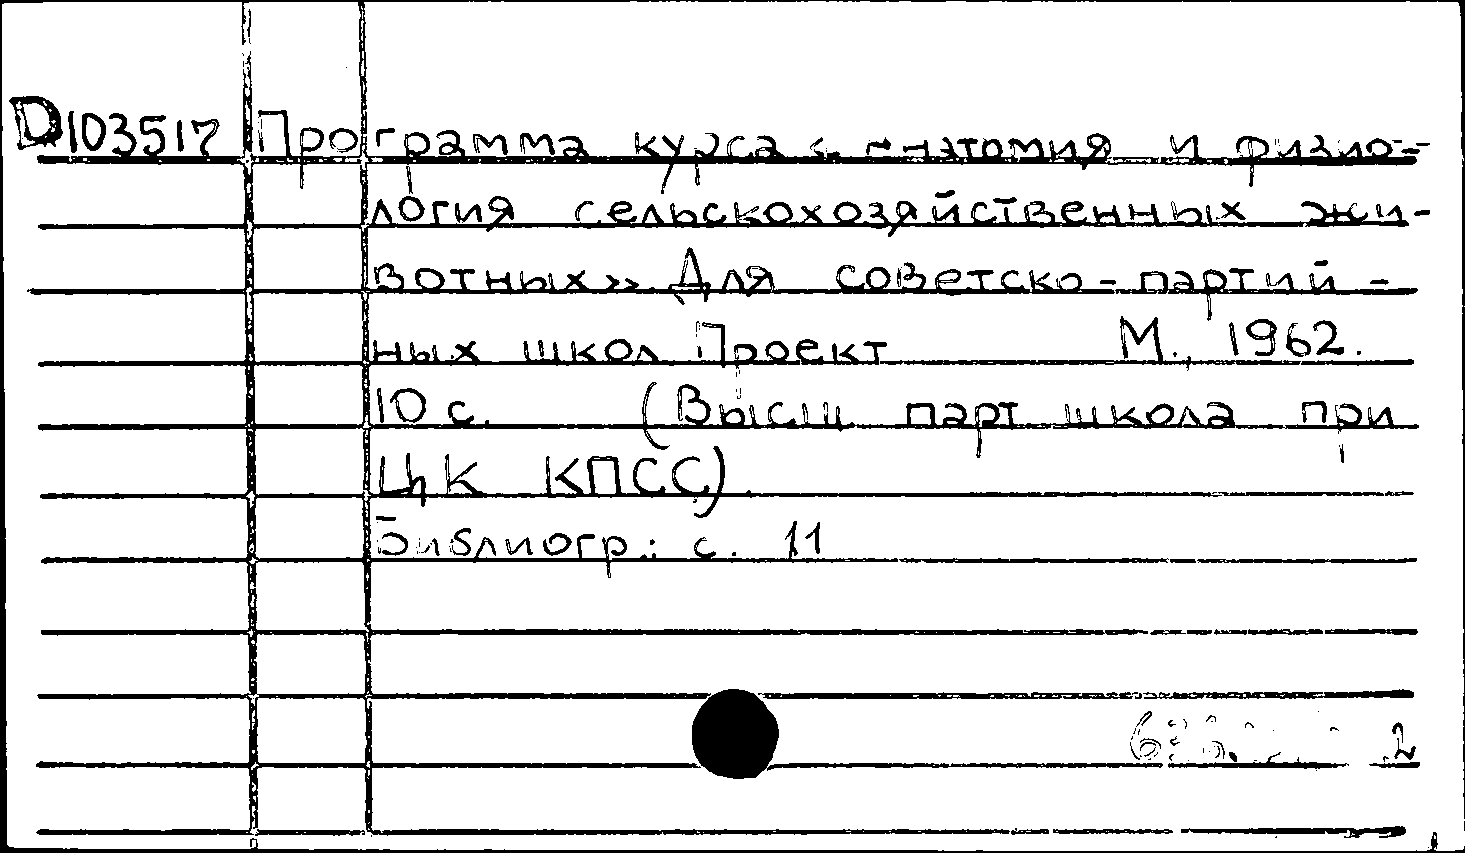 D103517 Программа курса «Анатомия и физио-
логия сельскохозяйственных жи-
вотных». Для советско-партий-
ных школ. Проект М., 1962.
10 с. (Высш. парт. школа при
ЦК КПСС).
Библиогр.: с. 11